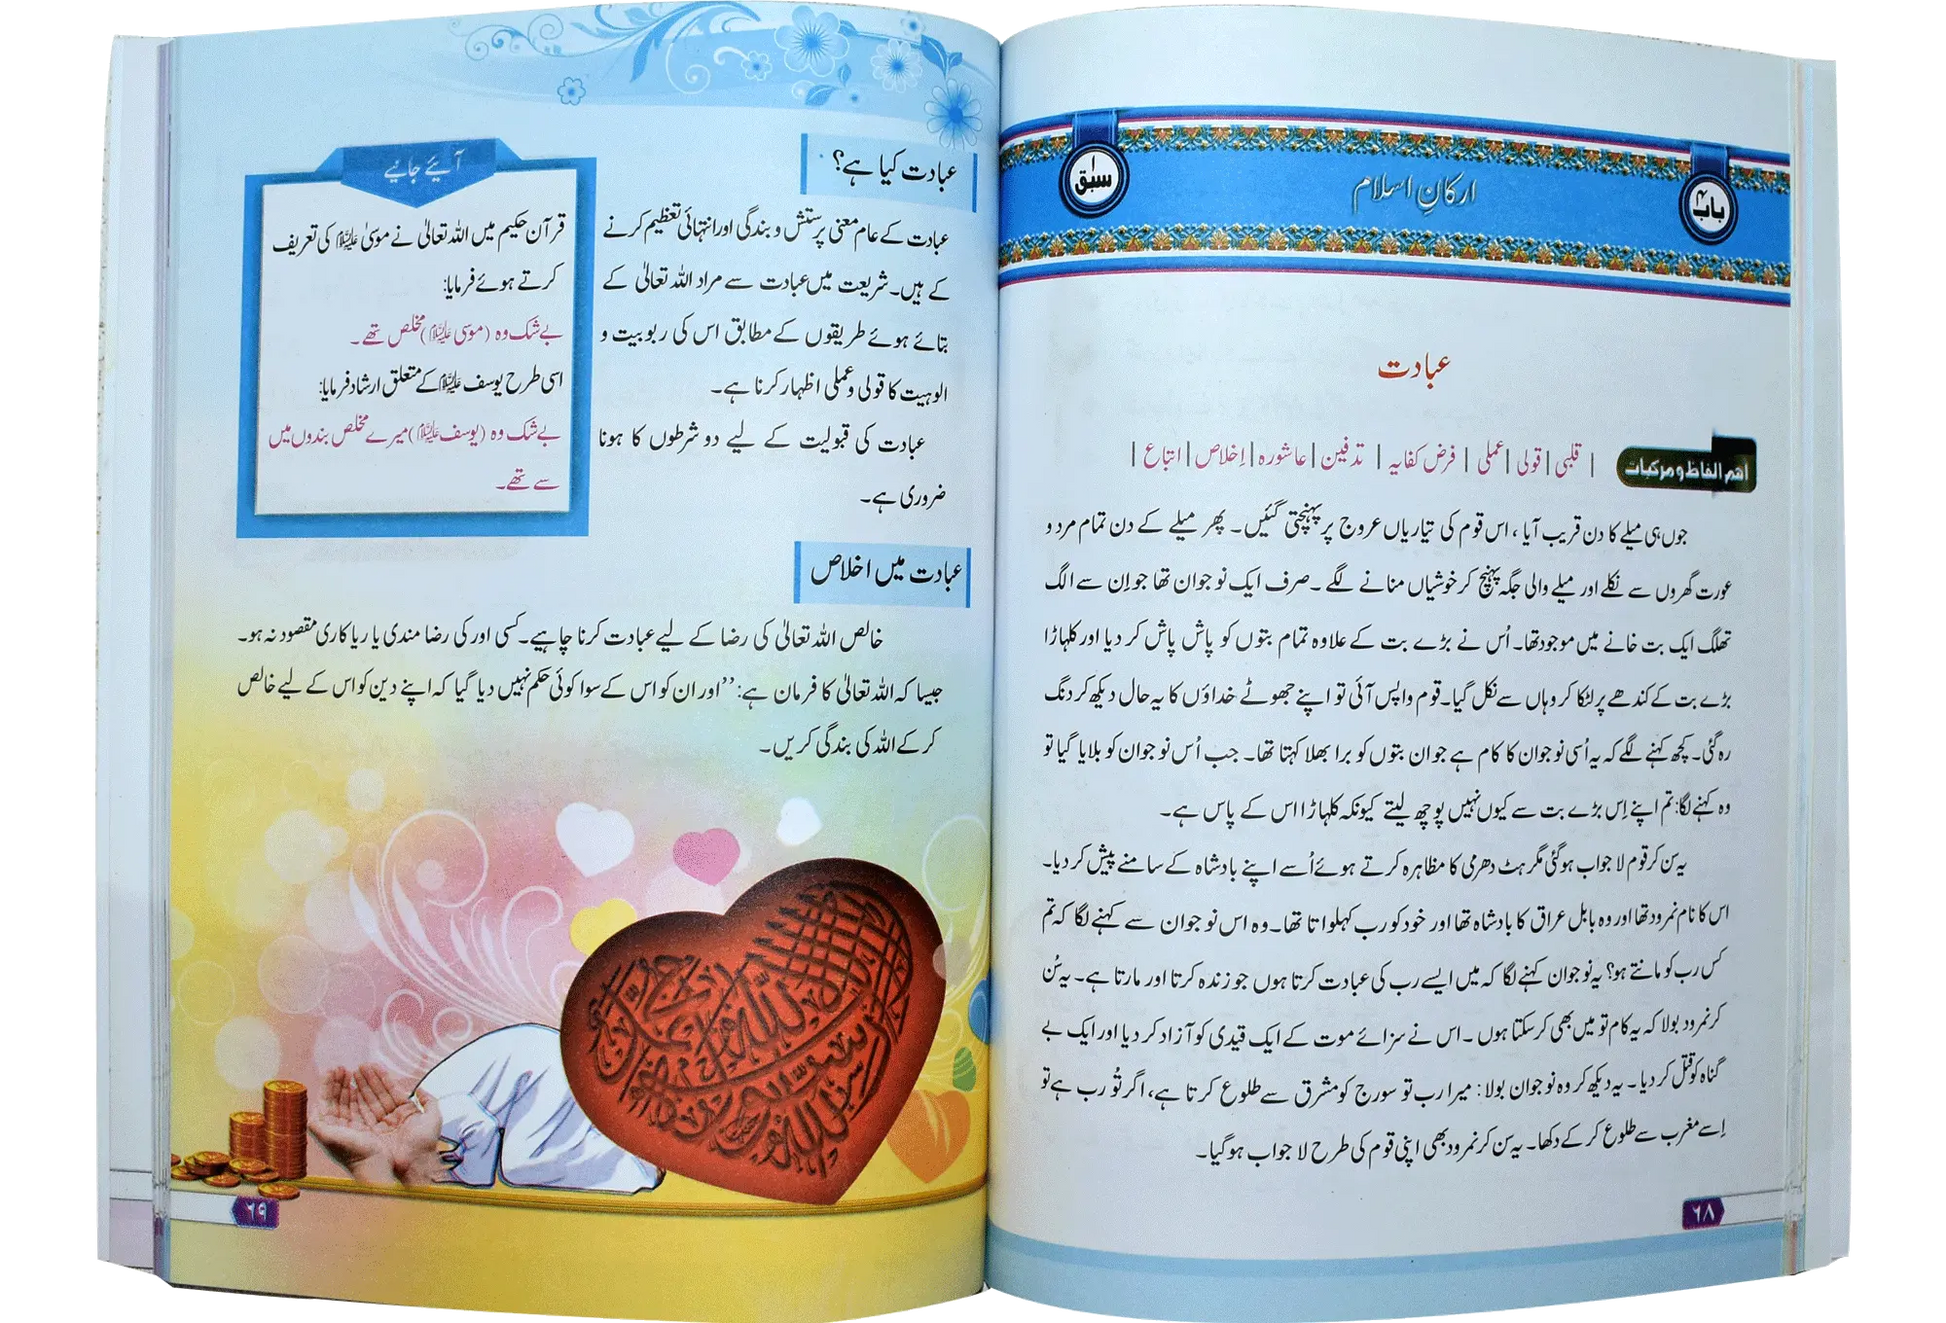 باب ۴
ارکانِ اسلام
سبق ۱
عبادت
اہم الفاظ و مرکبات
| قلبی | قولی | عملی | فرض کفایہ | تدفین | عاشورہ | اِخلاص | اتباع |
جوں ہی میلے کا دن قریب آیا، اس قوم کی تیاریاں عروج پر پہنچتی گئیں۔ پھر میلے کے دن تمام مرد و
عورت گھروں سے نکلے اور میلے والی جگہ پہنچ کر خوشیاں منانے لگے۔ صرف ایک نوجوان تھا جو اِن سے الگ
تھلگ ایک بت خانے میں موجود تھا۔ اُس نے بڑے بت کے علاوہ تمام بتوں کو پاش پاش کر دیا اور کلہاڑا
بڑے بت کے کندھے پر لٹکا کر وہاں سے نکل گیا۔ قوم واپس آئی تو اپنے جھوٹے خداؤں کا یہ حال دیکھ کر دنگ
رہ گئی۔ کچھ کہنے لگے کہ یہ اُسی نوجوان کا کام ہے جو ان بتوں کو برا بھلا کہتا تھا۔ جب اُس نوجوان کو بلایا گیا تو
وہ کہنے لگا: تم اپنے اِس بڑے بت سے کیوں نہیں پوچھ لیتے کیونکہ کلہاڑا اس کے پاس ہے۔
یہ سن کر قوم لا جواب ہوگئی مگر ہٹ دھرمی کا مظاہرہ کرتے ہوئے اُسے اپنے بادشاہ کے سامنے پیش کر دیا۔
اس کا نام نمرود تھا اور وہ بابل عراق کا بادشاہ تھا اور خود کو رب کہلواتا تھا۔ وہ اس نوجوان سے کہنے لگا کہ تم
کس رب کو مانتے ہو؟ یہ نوجوان کہنے لگا کہ میں ایسے رب کی عبادت کرتا ہوں جو زندہ کرتا اور مارتا ہے۔ یہ سُن
کر نمرود بولا کہ یہ کام تو میں بھی کر سکتا ہوں۔ اس نے سزائے موت کے ایک قیدی کو آزاد کر دیا اور ایک بے
گناہ کو قتل کر دیا۔ یہ دیکھ کر وہ نوجوان بولا: میرا رب تو سورج کو مشرق سے طلوع کرتا ہے، اگر تُو رب ہے تو
اِسے مغرب سے طلوع کر کے دکھا۔ یہ سن کر نمرود بھی اپنی قوم کی طرح لا جواب ہو گیا۔
۶۸
عبادت کیا ہے؟
عبادت کے عام معنی پرستش و بندگی اور انتہائی تعظیم کرنے
کے ہیں۔ شریعت میں عبادت سے مراد اللہ تعالیٰ کے
بتائے ہوئے طریقوں کے مطابق اس کی ربوبیت و
الوہیت کا قولی و عملی اظہار کرنا ہے۔
عبادت کی قبولیت کے لیے دو شرطوں کا ہونا
ضروری ہے۔
آیئے جانیے
قرآن حکیم میں اللہ تعالیٰ نے موسیٰ علیہ السلام کی تعریف
کرتے ہوئے فرمایا:
بے شک وہ (موسی علیہ السلام) مخلص تھے۔
اسی طرح یوسف علیہ السلام کے متعلق ارشاد فرمایا:
بے شک وہ (یوسف علیہ السلام) میرے مخلص بندوں میں
سے تھے۔
عبادت میں اخلاص
خالص اللہ تعالیٰ کی رضا کے لیے عبادت کرنا چاہیے۔ کسی اور کی رضا مندی یا ریا کاری مقصود نہ ہو۔
جیسا کہ اللہ تعالیٰ کا فرمان ہے: ’’اور ان کو اس کے سوا کوئی حکم نہیں دیا گیا کہ اپنے دین کو اس کے لیے خالص
کر کے اللہ کی بندگی کریں۔
۶۹